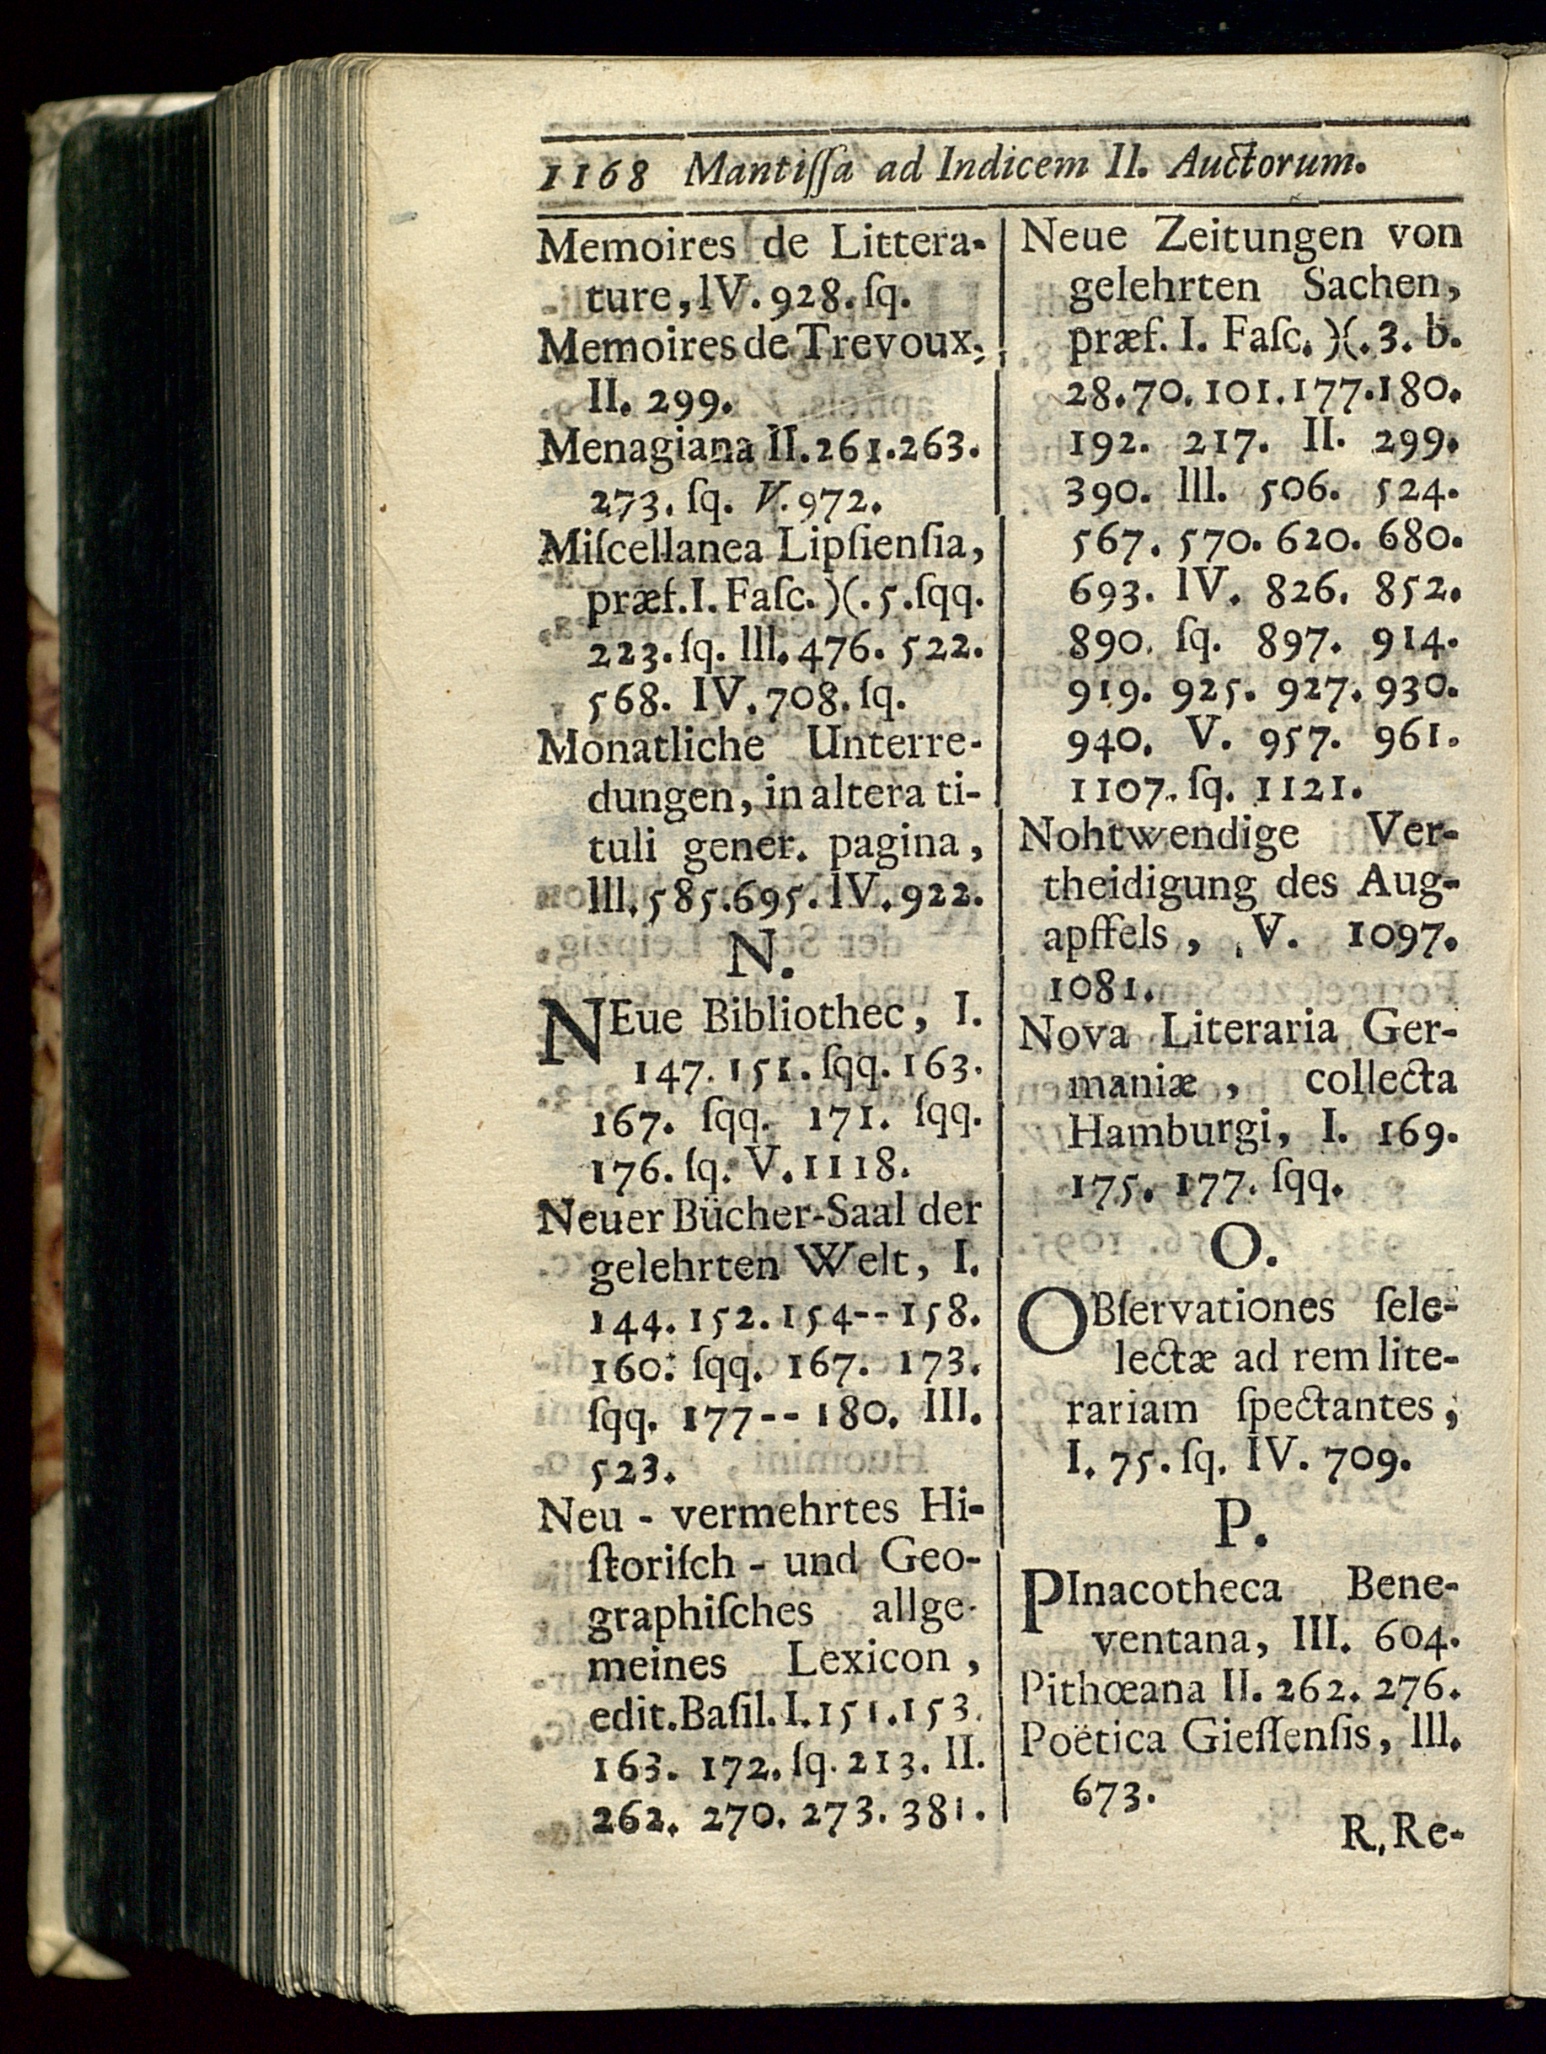 1168 Mantiſſa ad Indicem II. Auctorum.
Memoires de Littera-
ture, lV. 928. ſq.
Memoires de Trevoux,
II. 299.
Menagiana II. 261. 263.
273. ſq. V. 972.
Miſcellanea Lipſienſia,
præf. I. Faſc. )(. 5. ſqq.
223. ſq. lll. 476. 522.
568. IV. 708. ſq.
Monatliche Unterre-
dungen, in altera ti-
tuli gener. pagina,
lll. 585. 695. lV. 922.
N.
NEue Bibliothec, I.
147. 151. ſqq. 163.
167. ſqq. 171. ſqq.
176. ſq. V. 1118.
Neuer Bücher-Saal der
gelehrten Welt, I.
144. 152. 154--158.
160. ſqq. 167. 173.
ſqq. 177--180. III.
523.
Neu-vermehrtes Hi-
ſtoriſch-und Geo-
graphiſches allge-
meines Lexicon,
edit. Baſil. I. 151. 153.
163. 172. ſq. 213. II.
262. 270. 273. 381.
Neue Zeitungen von
gelehrten Sachen,
præf. I. Faſc. )(. 3. b.
28. 70. 101. 177. 180.
192. 217. II. 299.
390. lll. 506. 524.
567. 570. 620. 680.
693. lV. 826. 852.
890. ſq. 897. 914.
919. 925. 927. 930.
940. V. 957. 961.
1107. ſq. 1121.
Nohtwendige Ver-
theidigung des Aug-
apffels, V. 1097.
1081.
Nova Literaria Ger-
maniæ, collecta
Hamburgi, I. 169.
175. 177. ſqq.
O.
OBſervationes ſele-
lectæ ad rem lite-
rariam ſpectantes,
I. 75. ſq. IV. 709.
P.
PInacotheca Bene-
ventana, III. 604.
Pithœana II. 262. 276.
Poëtica Gieſſenſis, lll.
673.
R. Re-